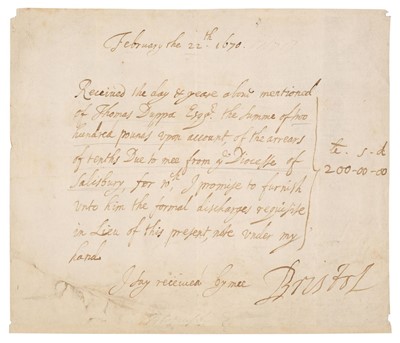 February the 22th 1670.
Received the day & yeare above mentioned
of Thomas Duppa Esqr. the summe of two
hundred pounds upon account of the arrears
of tenths Due to mee from ye Diocese of
Salesbury, for wch I promise to furnish
unto him the formal discharges requisite
in Lieu of this present, note under my
hand.
li - s - d
200-00-00
I say received by mee Bristol